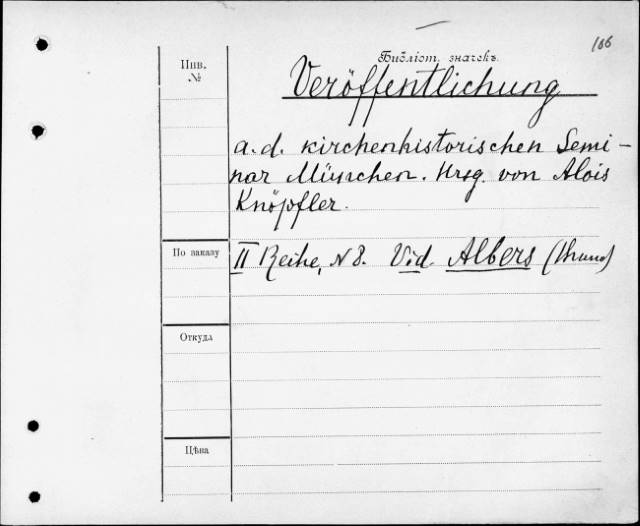 106
Библіот. значекъ.
Инв.
№
Veröffentlichung
a. d. kirchenhistorischen Semi-
nar München. Hrsg. von Alois
Knöpfler.
По заказу
II Reihe, N 8. Vid. Albers (Bruno)
Откуда
Цѣна